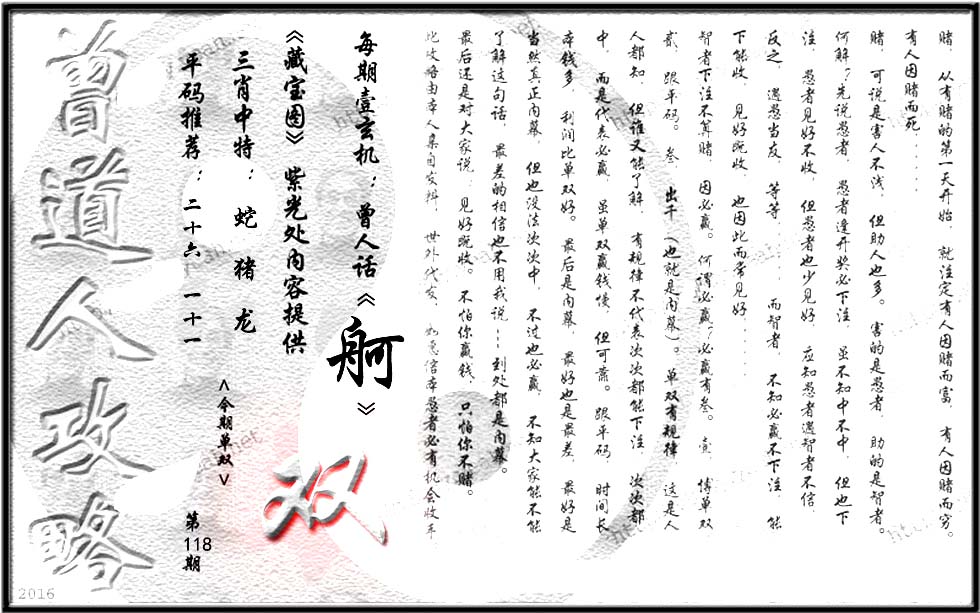 赌. 从有赌的第一天开始. 就注定有人因赌而富. 有人因赌而穷.
有人因赌而死......
赌. 可说是害人不浅. 但助人也多。害的是愚者. 助的是智者。
何解?先说愚者. 愚者逢开奖必下注. 虽不知中不中. 但也下
注. 愚者见好不收. 但愚者也少见好. 应知愚者遇智者不信.
反之. 遇愚当友. 等等...... 而智者. 不知必赢不下注. 能
下能收. 见好既收. 也因此而常见好......
智者下注不算赌. 因必赢。何谓必赢?必赢有叁。壹. 博单双.
贰. 跟平码。叁. 出千(也就是内幕)。单双有规律. 这是人
人都知. 但谁又能了解. 有规律不代表次次都能下注. 次次都
中. 而是代表必赢. 虽单双赢钱慢. 但可靠。跟平码. 时间长.
本钱多. 利润比单双好。最后是内幕. 最好也是最差. 最好是
当然真正内幕. 但也没法次次中. 不过也必赢. 不知大家能不能
了解这句话. 最差的相信也不用我说...到处都是内幕。
最后还是对大家说. 见好既收。不怕你赢钱. 只怕你不赌。
此攻略由本人集自资料. 世外代友. 如愿信本愚者必有机会收车
每期壹玄机:曾人话《舸》
《藏宝图》紫光处内容提供
三肖中特: 蛇 猪 龙
平码推荐:二十六 一十一
<今期单双>
双
第118期
曾道人攻略
2016